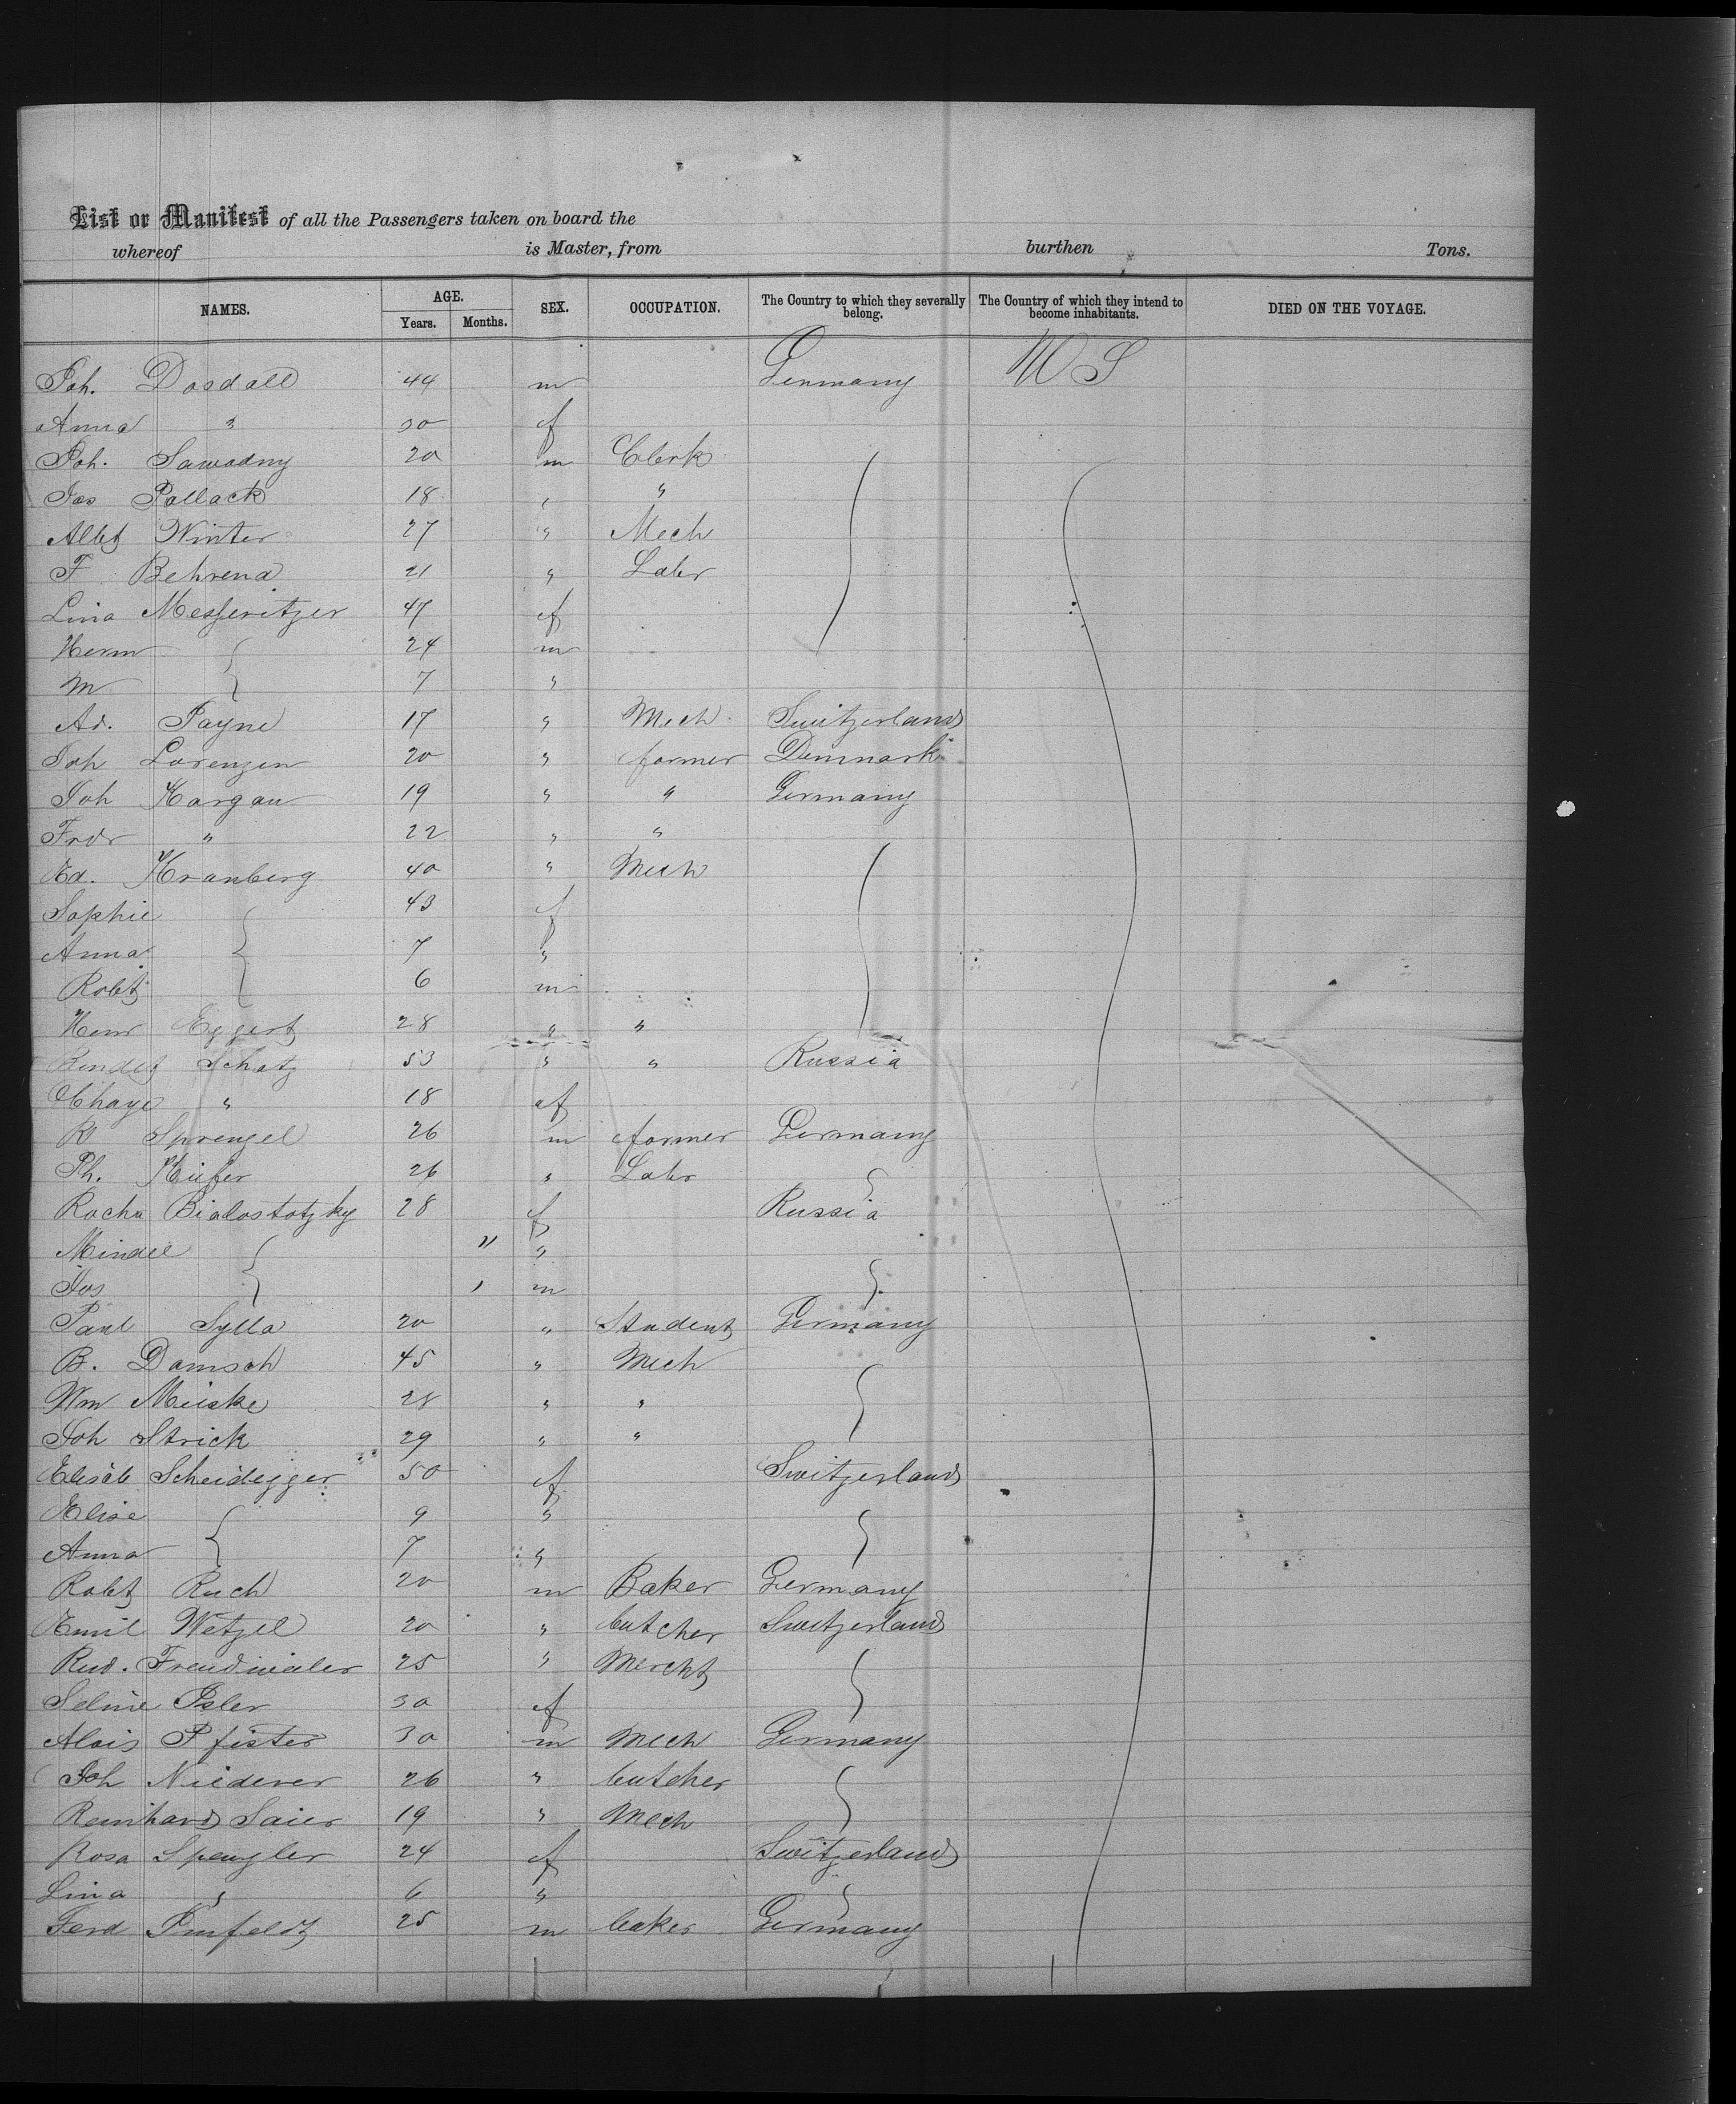 List or Manifest of all the Passengers taken on board the
whereof is Master, from burthen Tons.
NAMES. AGE. Years. Months. SEX. OCCUPATION. The Country to which they severally belong. The Country of which they intend to become inhabitants. DIED ON THE VOYAGE.
Joh. Dosdall 44 m Germany U S
Anna " 30 f
Joh. Sawodny 20 m Clerk
Jos Pollack 18 " "
Albt Winter 27 " Mech
F Behrend 21 " Labr
Lina Messeritzer 47 f
Herm 24 m
M 7 "
Ad. Payne 17 " Mech Switzerland
Joh Lorenzen 20 " farmer Denmark
Joh Kargau 19 " " Germany
Frdr " 22 " "
Ed. Kranberg 40 " Mech
Sophie 43 f
Anna 7 "
Robt 6 m
Henr Eggert 28 " "
Schatz 53 " " Russia
Chaye " 18 f
R Sprengel 26 m farmer Germany
Ph. Kiefer 26 " Labr
Roche Bialostotzky 28 f Russia
Mindel 11 "
Jos m
Paul Sylla 20 " Student Germany
B. Damsch 45 " Mech
Wm Mieske 28 " "
Joh Strick 29 " "
Elisab Scheidegger 50 f Switzerland
Elise 9 "
Anna 7 "
Robt Ruch 20 m Baker Germany
Emil Wetzel 20 " butcher Switzerland
Rud. Freudwieler 25 " Mercht
Seline Isler 30 f
Alois Pfister 30 m Mech Germany
Joh Niederer 26 " butcher
Reinhard Saier 19 " Mech
Rosa Spengler 24 f Switzerland
Lina " 6 "
Ferd 25 m baker Germany